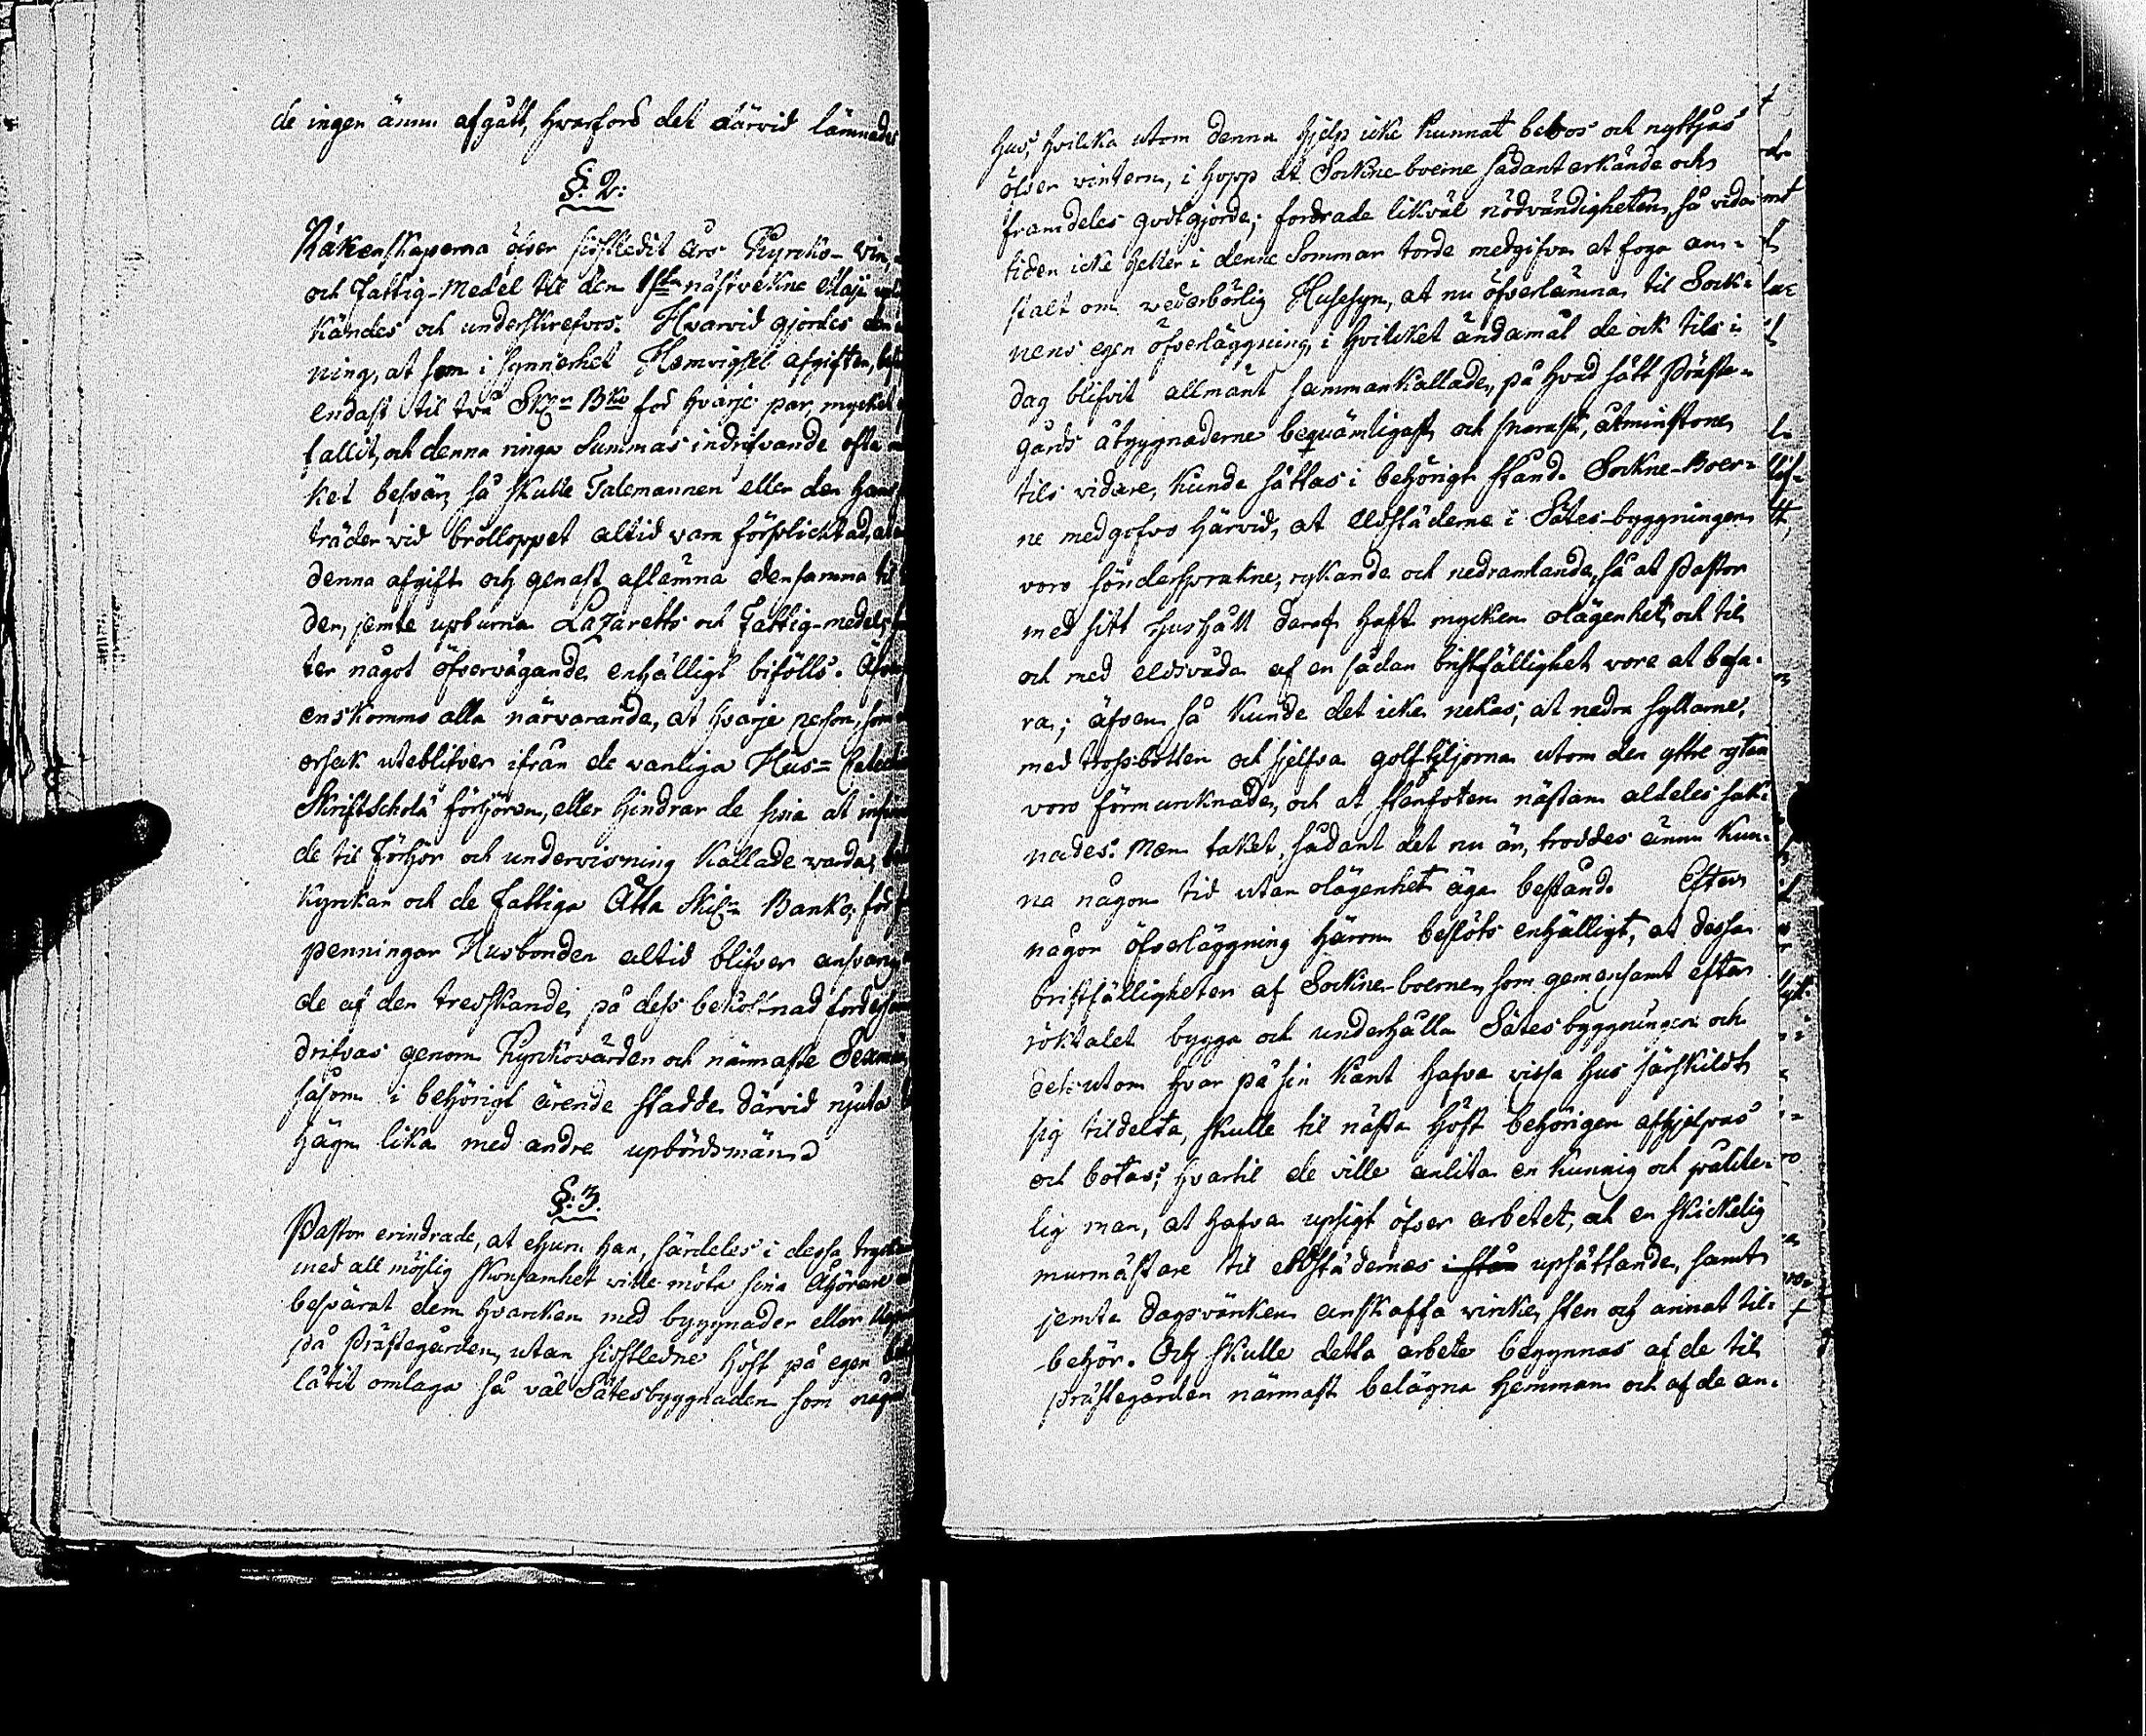 de ingen ännu afgått, hvarföre det därvid lämnades
§. 2:
Räkenskaperna öfver sistledit års Kyrko- vin-
och Fattig-Medel til den 1sta nästvekne Maji
kändes och underskrefvos. Hvarvid gjordes
ning, at som i synnerhet Hemvigsel afgiften,
endast til två Sk:r B:ko för hvarje par, mycket
fallit, och denna ringa Summas indrifvande ofta
ket besvär, så skulle Talemannen eller den hans
träder vid bröllopet altid vara förplicktad, at
denna afgift och genast aflemna densamma til
den, jemte upburna Lazaretts och Fattig-medel,
ter något öfvervägande enhälligt bifölls.
enskommo alla närvarande, at hvarje person, som
orsak uteblifver ifrån de vanliga Hus-
Skriftschola förhören, eller hindrar de sina at
de til Förhör och undervisning kallade varda,
Kyrkan och de Fattiga Åtta Skil:r Banko; för
penningar Husbonden altid blifver ansvarig
de af den tredskande, på dess bekostnad
drifvas genom Kyrkovärden och närmaste
såsom i behörigt ärende stadde därvid njuta
hägn lika med andre upbördsmän.
§. 3.
Pastor erindrade, at ehuru han, särdeles i dessa
med all möjlig skonsamhet ville möta sina Åhörare
besvärat dem hvarken med byggnader eller
på Prästegården, utan sistledne höst på egen
låtit omlaga så väl Sätesbyggnaden som några
hus, hvilcka utom denna hjelp icke kunnat bebos och nyttjas
öfver vintern, i hopp at Sockne-boerne sådant erkände och
framdeles godtgjorde; fordrade likväl nödvändigheten, så vida
tiden icke heller i denne Sommar torde medgifva at foga an-
stalt om vederbörlig Husesyn, at nu öfverlämna til Sock-
nens egen öfverläggning, i hvilcket ändamål de ock til i
dag blifvit allmänt sammankallade, på hvad sätt Präste-
gårds åbyggnaderne beqvämligast och snarast, åtminstone
tils vidare, kunde sättas i behörigt stånd. Sockne-Boer-
ne medgofvo härvid, at eldstäderne i Sätes-byggningen
voro sönderspruckne, rykande och nedramlande, så at Pastor
med sitt hushåll däraf haft mycken olägenhet, och til
och med eldsvåda af en sådan bristfällighet vore at befa-
ra; äfven så kunde det icke nekas, at nedra syllarne,
med trossbotten och sjelfva golf-tiljorna utom den yttre ytan
voro förmurknade, och at stenfoten nästan aldeles sak-
nades. Men taket, sådant det nu är, troddes ännu kun-
na någon tid utan olägenhet äga bestånd. Efter
någon öfverläggning härom beslöts enhälligt, at dessa
bristfälligheter af Sockne-boerne, som gemensamt efter
röktalet bygga och underhålla Sätesbyggningen och
dessutom hvar på sin kant hafva vissa hus särskildt
sig tildelta, skulle til nästa höst behörigen afhjelpas
och botas; hvartil de ville anlita en kunnig och pålite-
lig man, at hafva upsigt öfver arbetet, och en skickelig
murmästare til eldstädernas i stån upsättande, samt
jemte dagsvärken anskaffa virke, sten och annat til-
behör. Och skulle detta arbete begynnas af de til
prästegården närmast belägna Hemman och af de an-